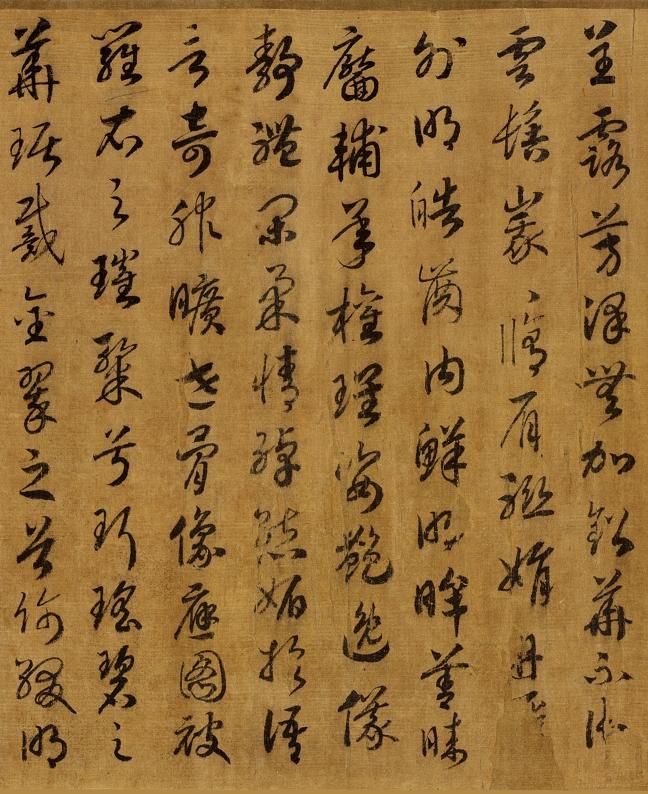 呈露芳澤無加鉛華不御
雲髻峩〻脩眉聯娟丹
外朗皓齒內鮮明眸善睞
靨輔承權瑰姿艷逸儀
靜體閑柔情綽態媚於語
言奇服曠世骨像應圖被
羅衣之璀粲兮珥瑤碧之
華琚戴金翠之首飾綴明